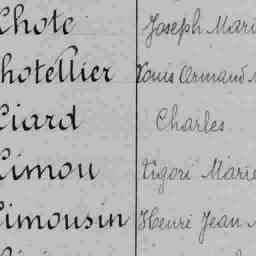 Chotc Joseph Mari
hotellier Louis Armand
Ciard Charles
Limou Vigori Marie
Limousin Henri Jean